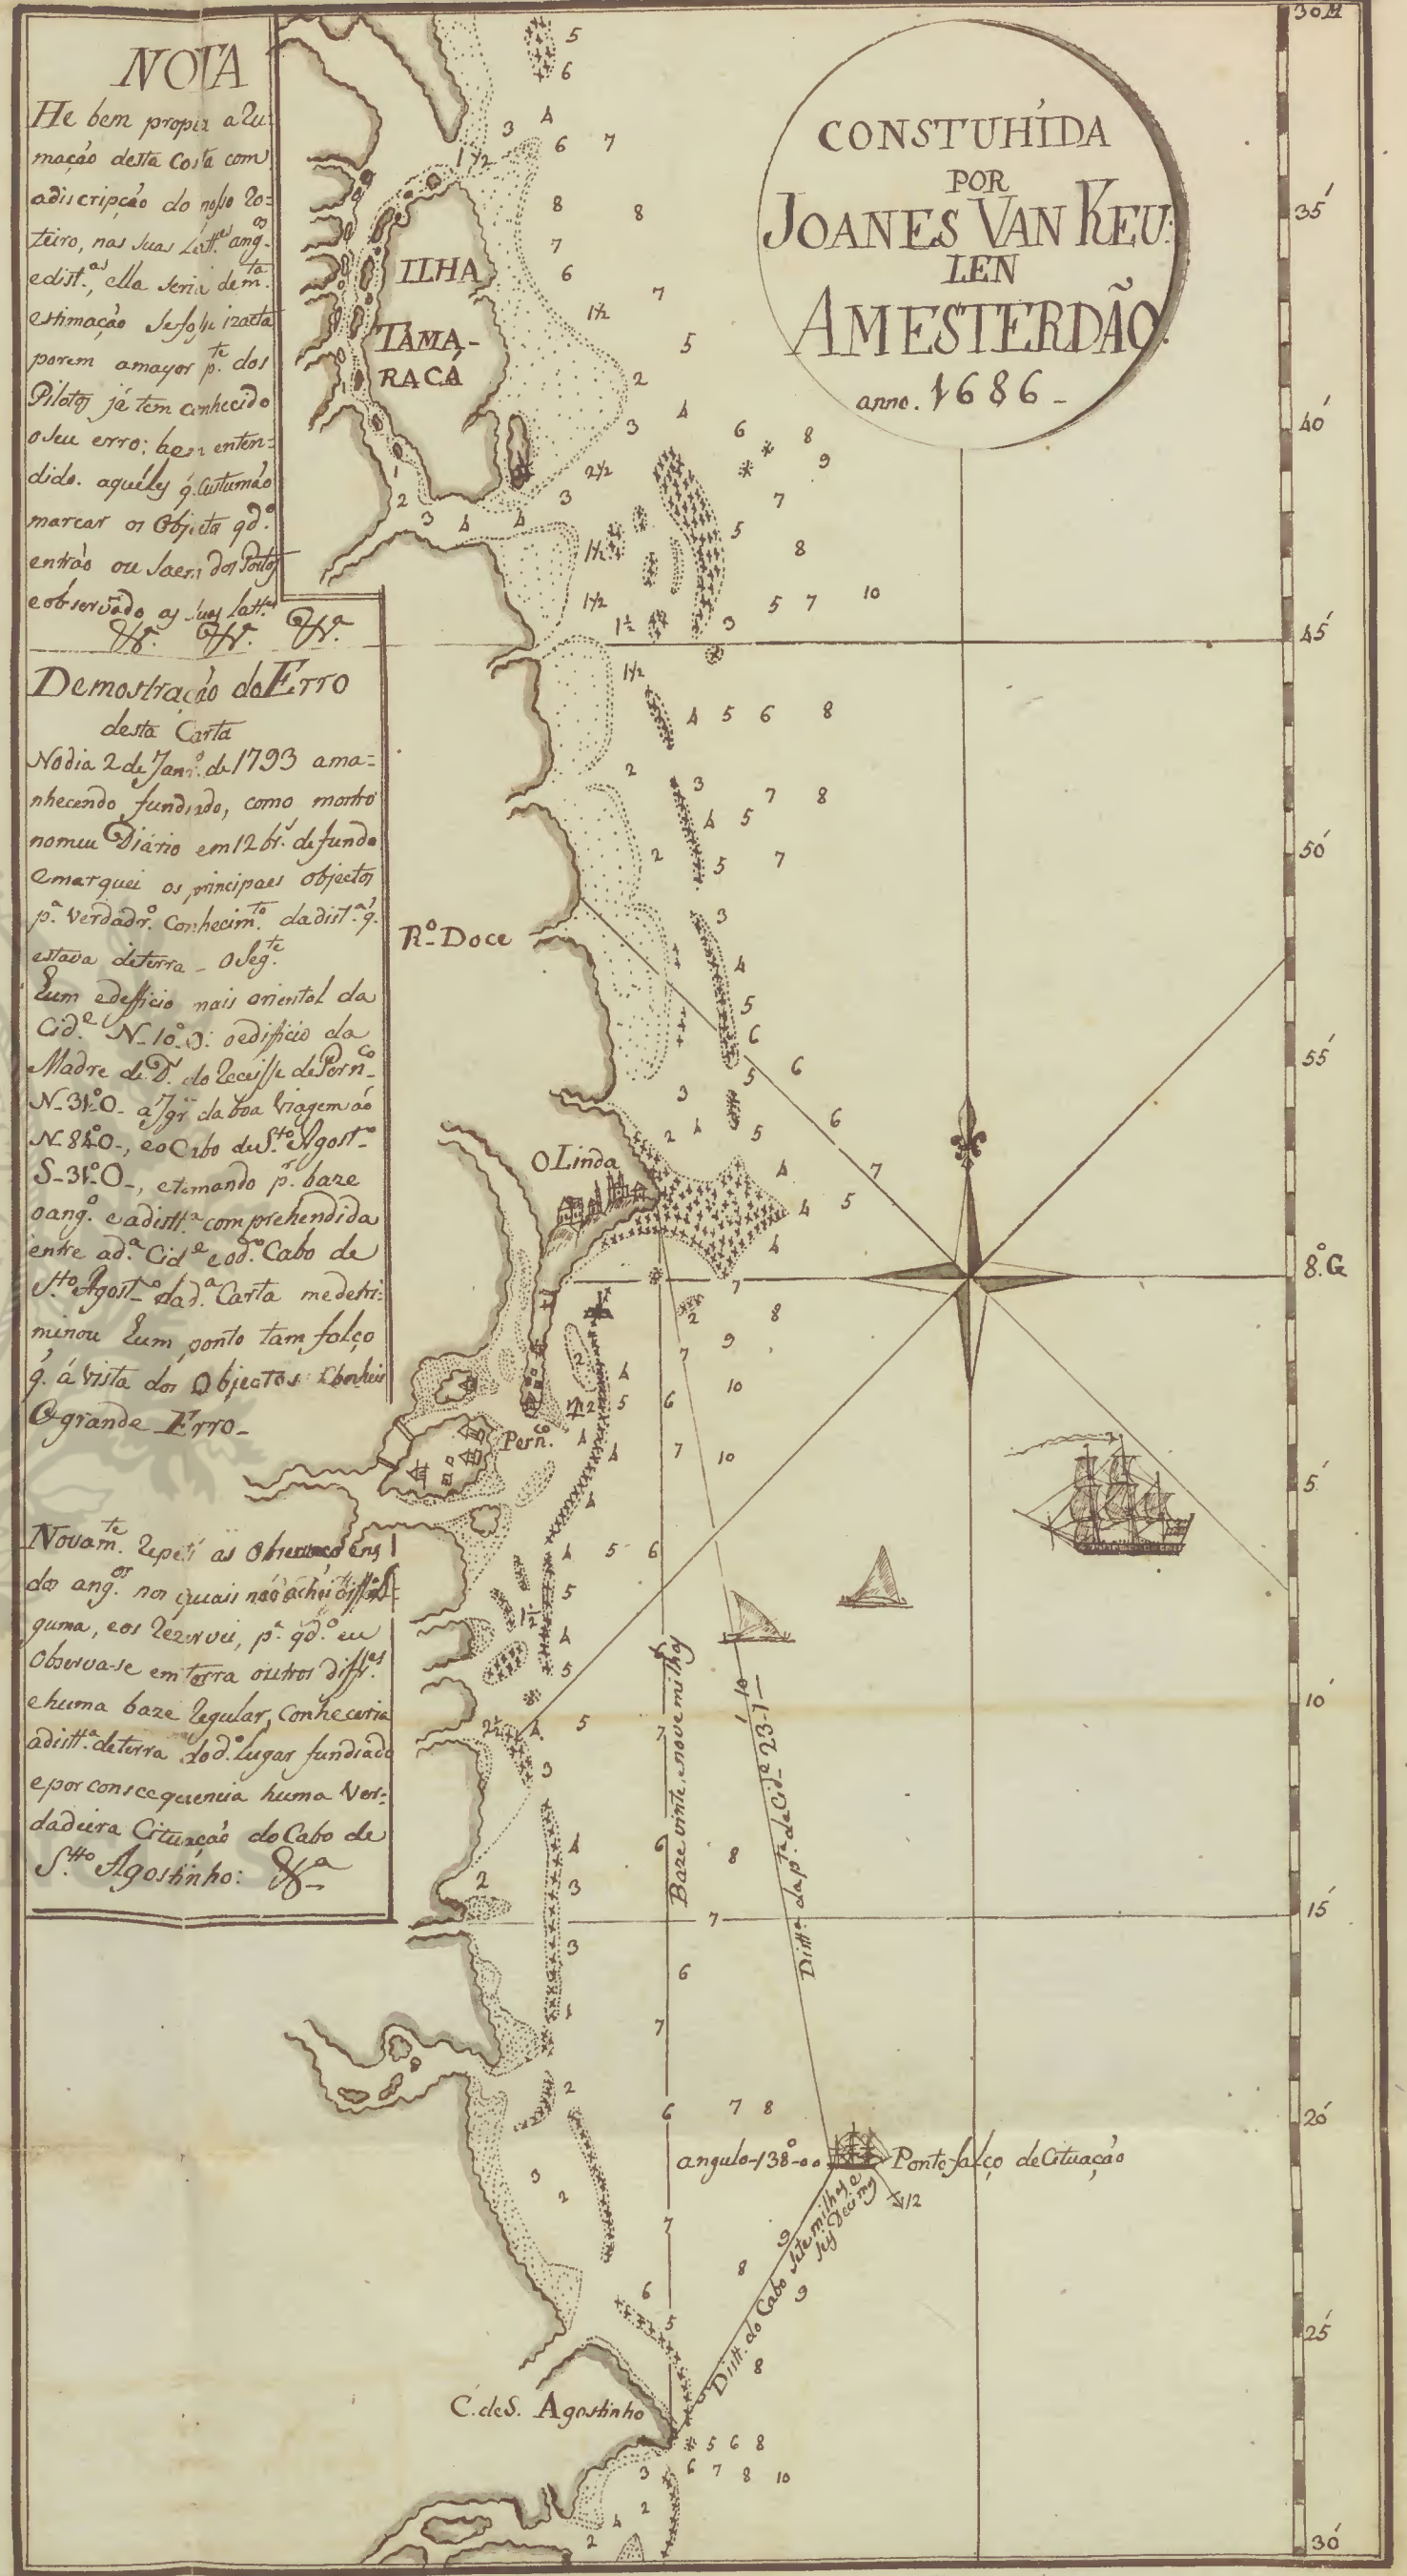 NOTA
He bem propia a Ru:
mação desta Costa com
adiscripção do nosso Ro=
teiro, nas suas Latt.es ang.os
edist.as, ella seria dem.ta
estimação sefosse izacta
porem amayor p.te dos
Pilotos já tem conhecido
oseu erro; bem enten=
dido. aquélles q. Custumão
marcar os Objectos qd.o
entrão ou Saem dos Portos
eobservãdo as suas latt.es
&.a &.a &.a
Demostração do Erro
desta Carta
Nodia 2 de Janr.o de 1793 ama=
nhecendo fundiado, como mostro
nomeu Diário em 12 br.s de fundo
emarquei os principaes objectos
p.a verdadr.o Conhecim.to dadist.a q.
estava deterra - OSeg.te
hum edefficio mais oriental da
Cid.e N-10.o-O: oedificio da
Madre de D.s do Reciffe de Pern.co
N-31.o-O- a Igr.a da boa Viagem áo
N-82.o-O-, eo Cabo de S.to Agost.o
S-31.o-O-, etomando p.r baze
oang.o eadistt.a comprehendida
entre ad.a Cid.e eod.o Cabo de
S.to Agost.o dad.a Carta medetri:
minou hum ponto tam falço
q. á Vista dos Objectos Conheci
Ogrande Erro-
Novam.te Repeti as Observaçoens
dos ang.os nos quais não achei differ
guma, eos Rezervei, p.a qd.o eu
Observa-se em terra outros diffr.es
ehuma baze Regular, Conheceria
adistt.a deterra dod.o Lugar fundiado
epor conscequencia huma Ver:
dadeira Cituação do Cabo de
S.tto Agostinho: &.a
CONSTUHÍDA
POR
JOANES VAN KEU:
LEN
AMESTERDÃO.
anno. 1686-
ILHA
TAMA-
RACÁ
R.o Doce
OLinda
Pern.co
C. de S. Agostinho
Baze vinte, enove milhas
Distt.a da p.ta da Cid.e 23-1-
angulo-138.o-00
Ponto falço de Cituação
Distt. do Cabo Sete milhas e
Seis Decimos
30 M
35'
40'
45'
50'
55'
8.o G
5'
10'
15'
20'
25'
30'